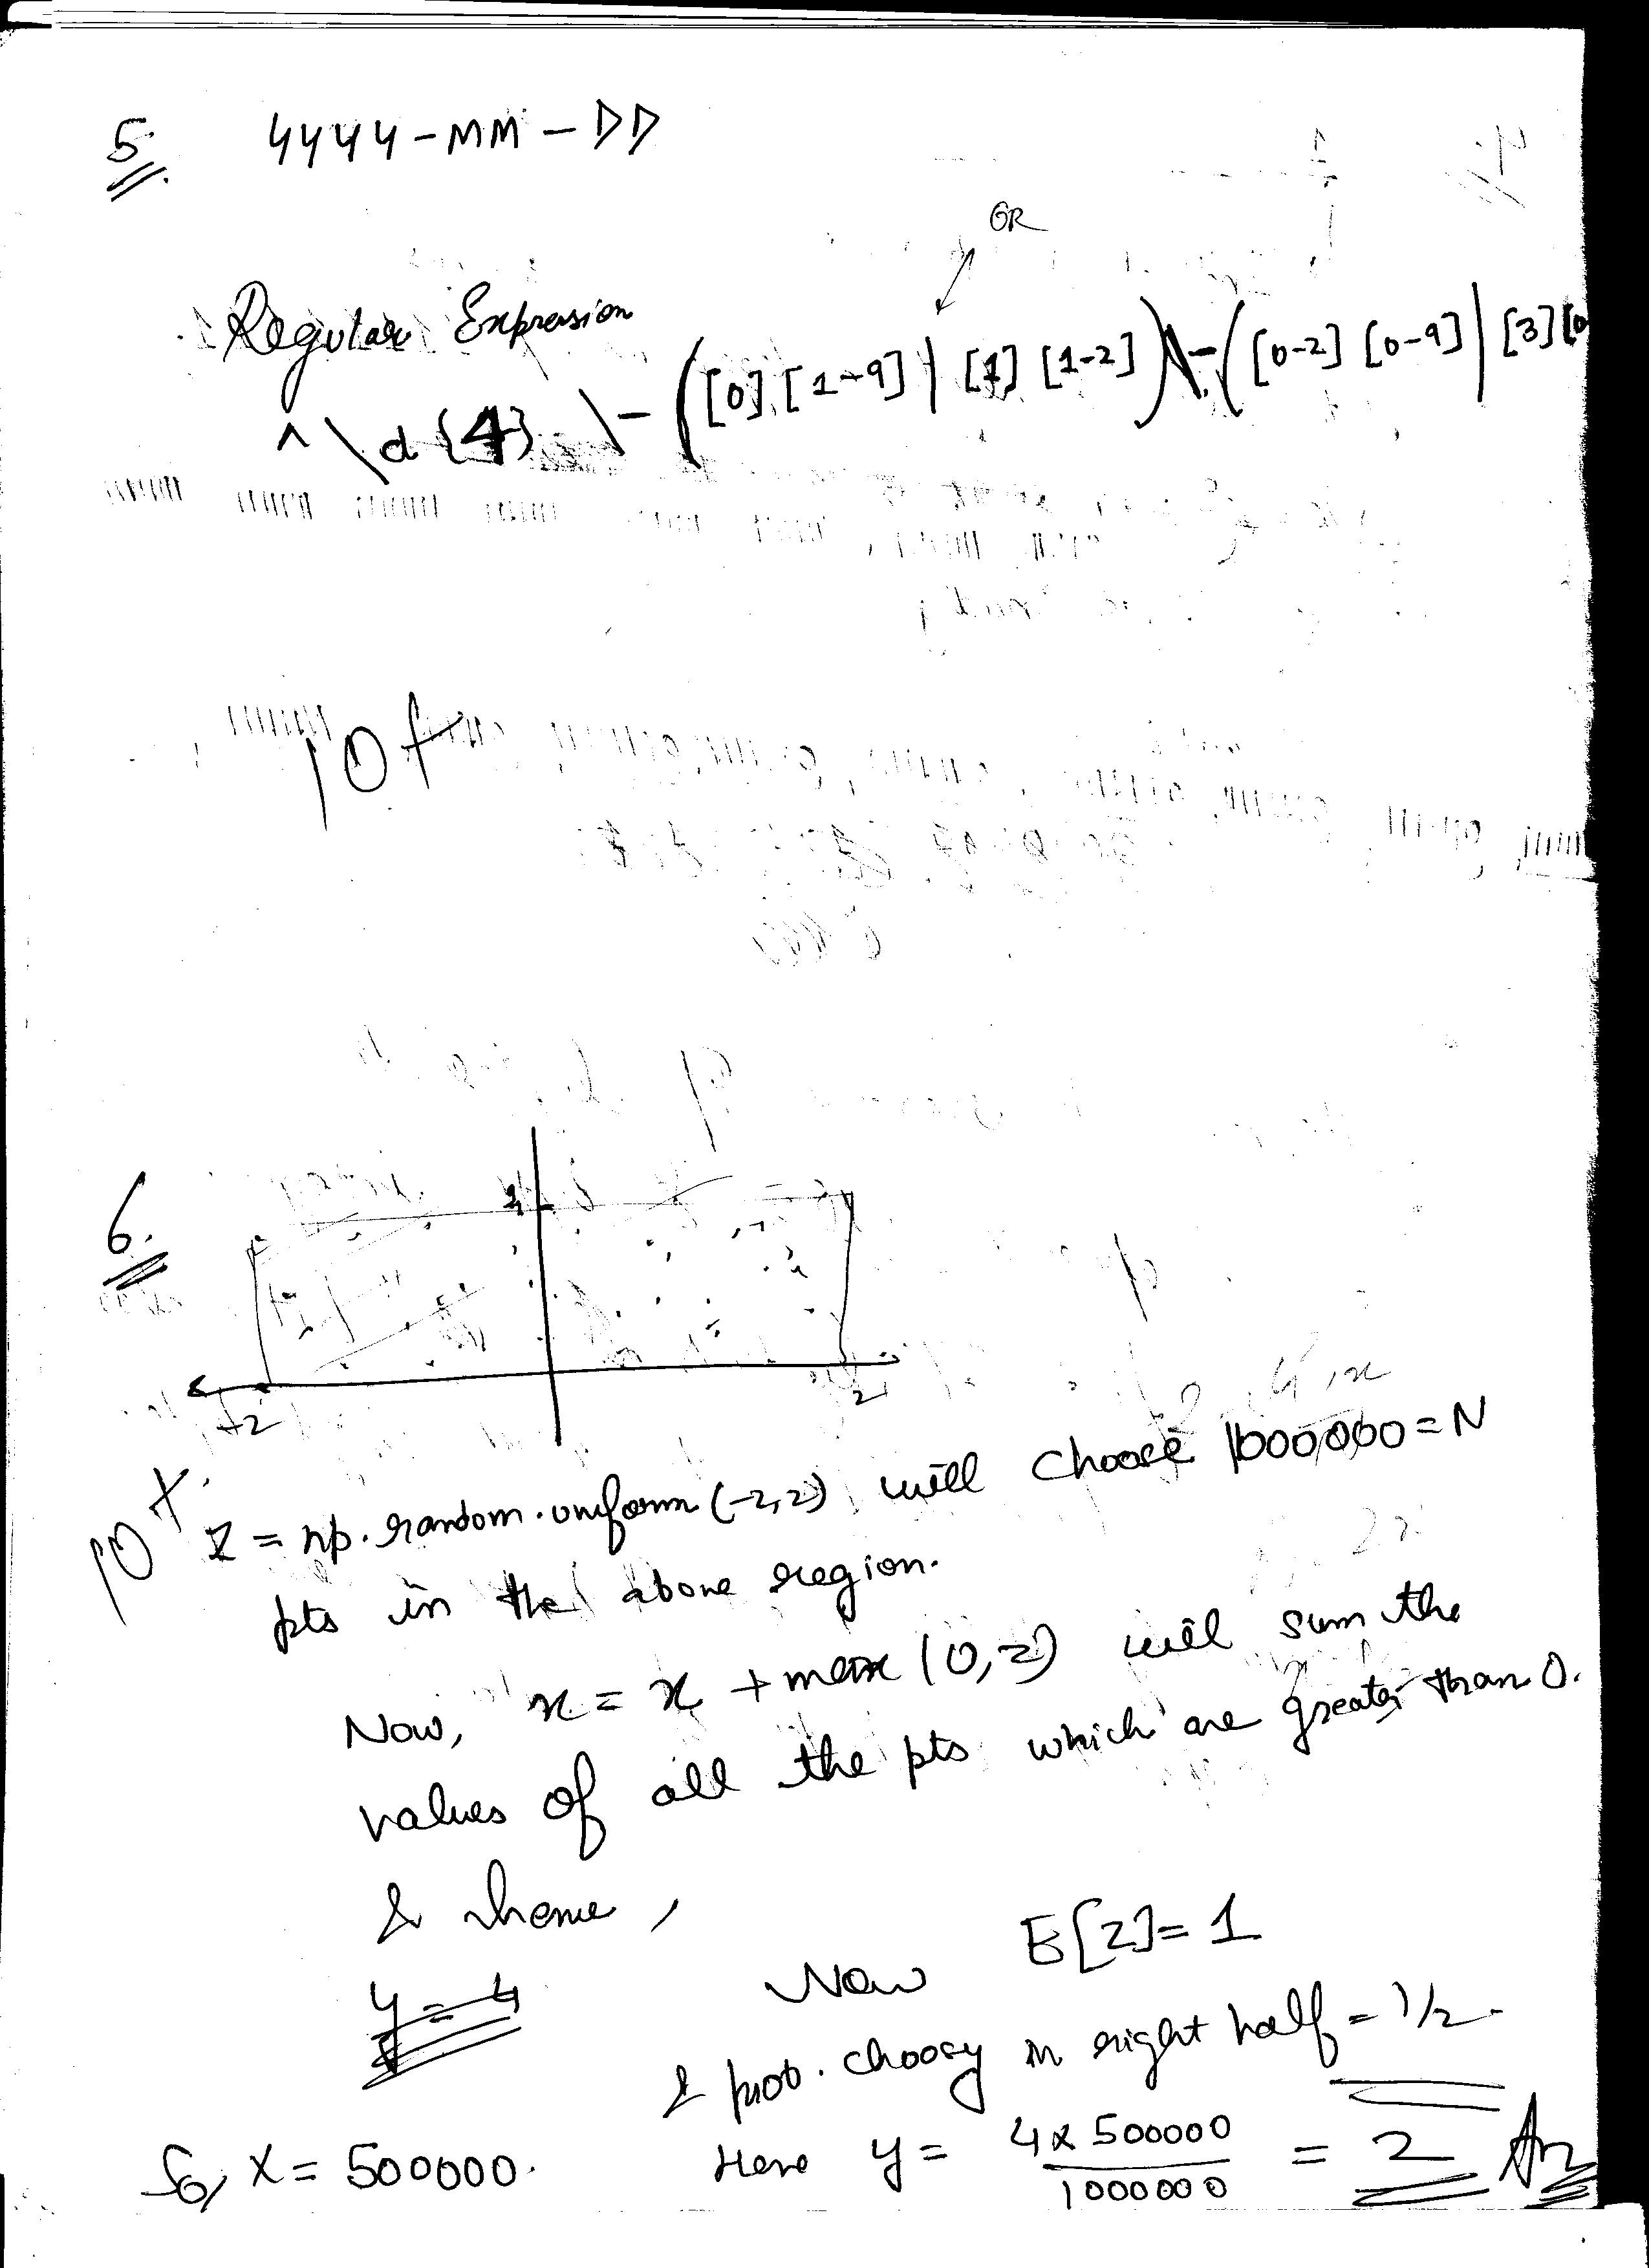 5.
4444-MM-DD
OR
Regular Expression
^\d{4}\-([0][1-9]|[1][1-2])\-([0-2][0-9]|[3][0
10+
6.
1
-2
2
10+
Z = np.random.uniform(-2,2) will choose 1000000=N
pts in the above region.
Now, x = x + max(0,z) will sum the
values of all the pts which are greater than 0.
& hence,
Now E[Z]=1
& prob. choosy in right half = 1/2
So, X = 500000. Here y = 4x500000/1000000 = 2 Ans